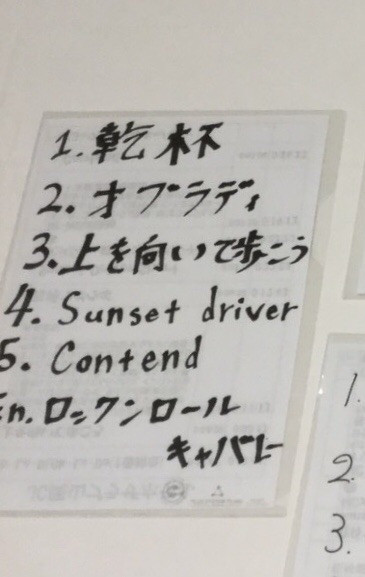 1. 乾杯
2. オブラディ
3. 上を向いて歩こう
4. Sunset driver
5. Contend
En. ロックンロール
キャバレー
1.
2.
3.